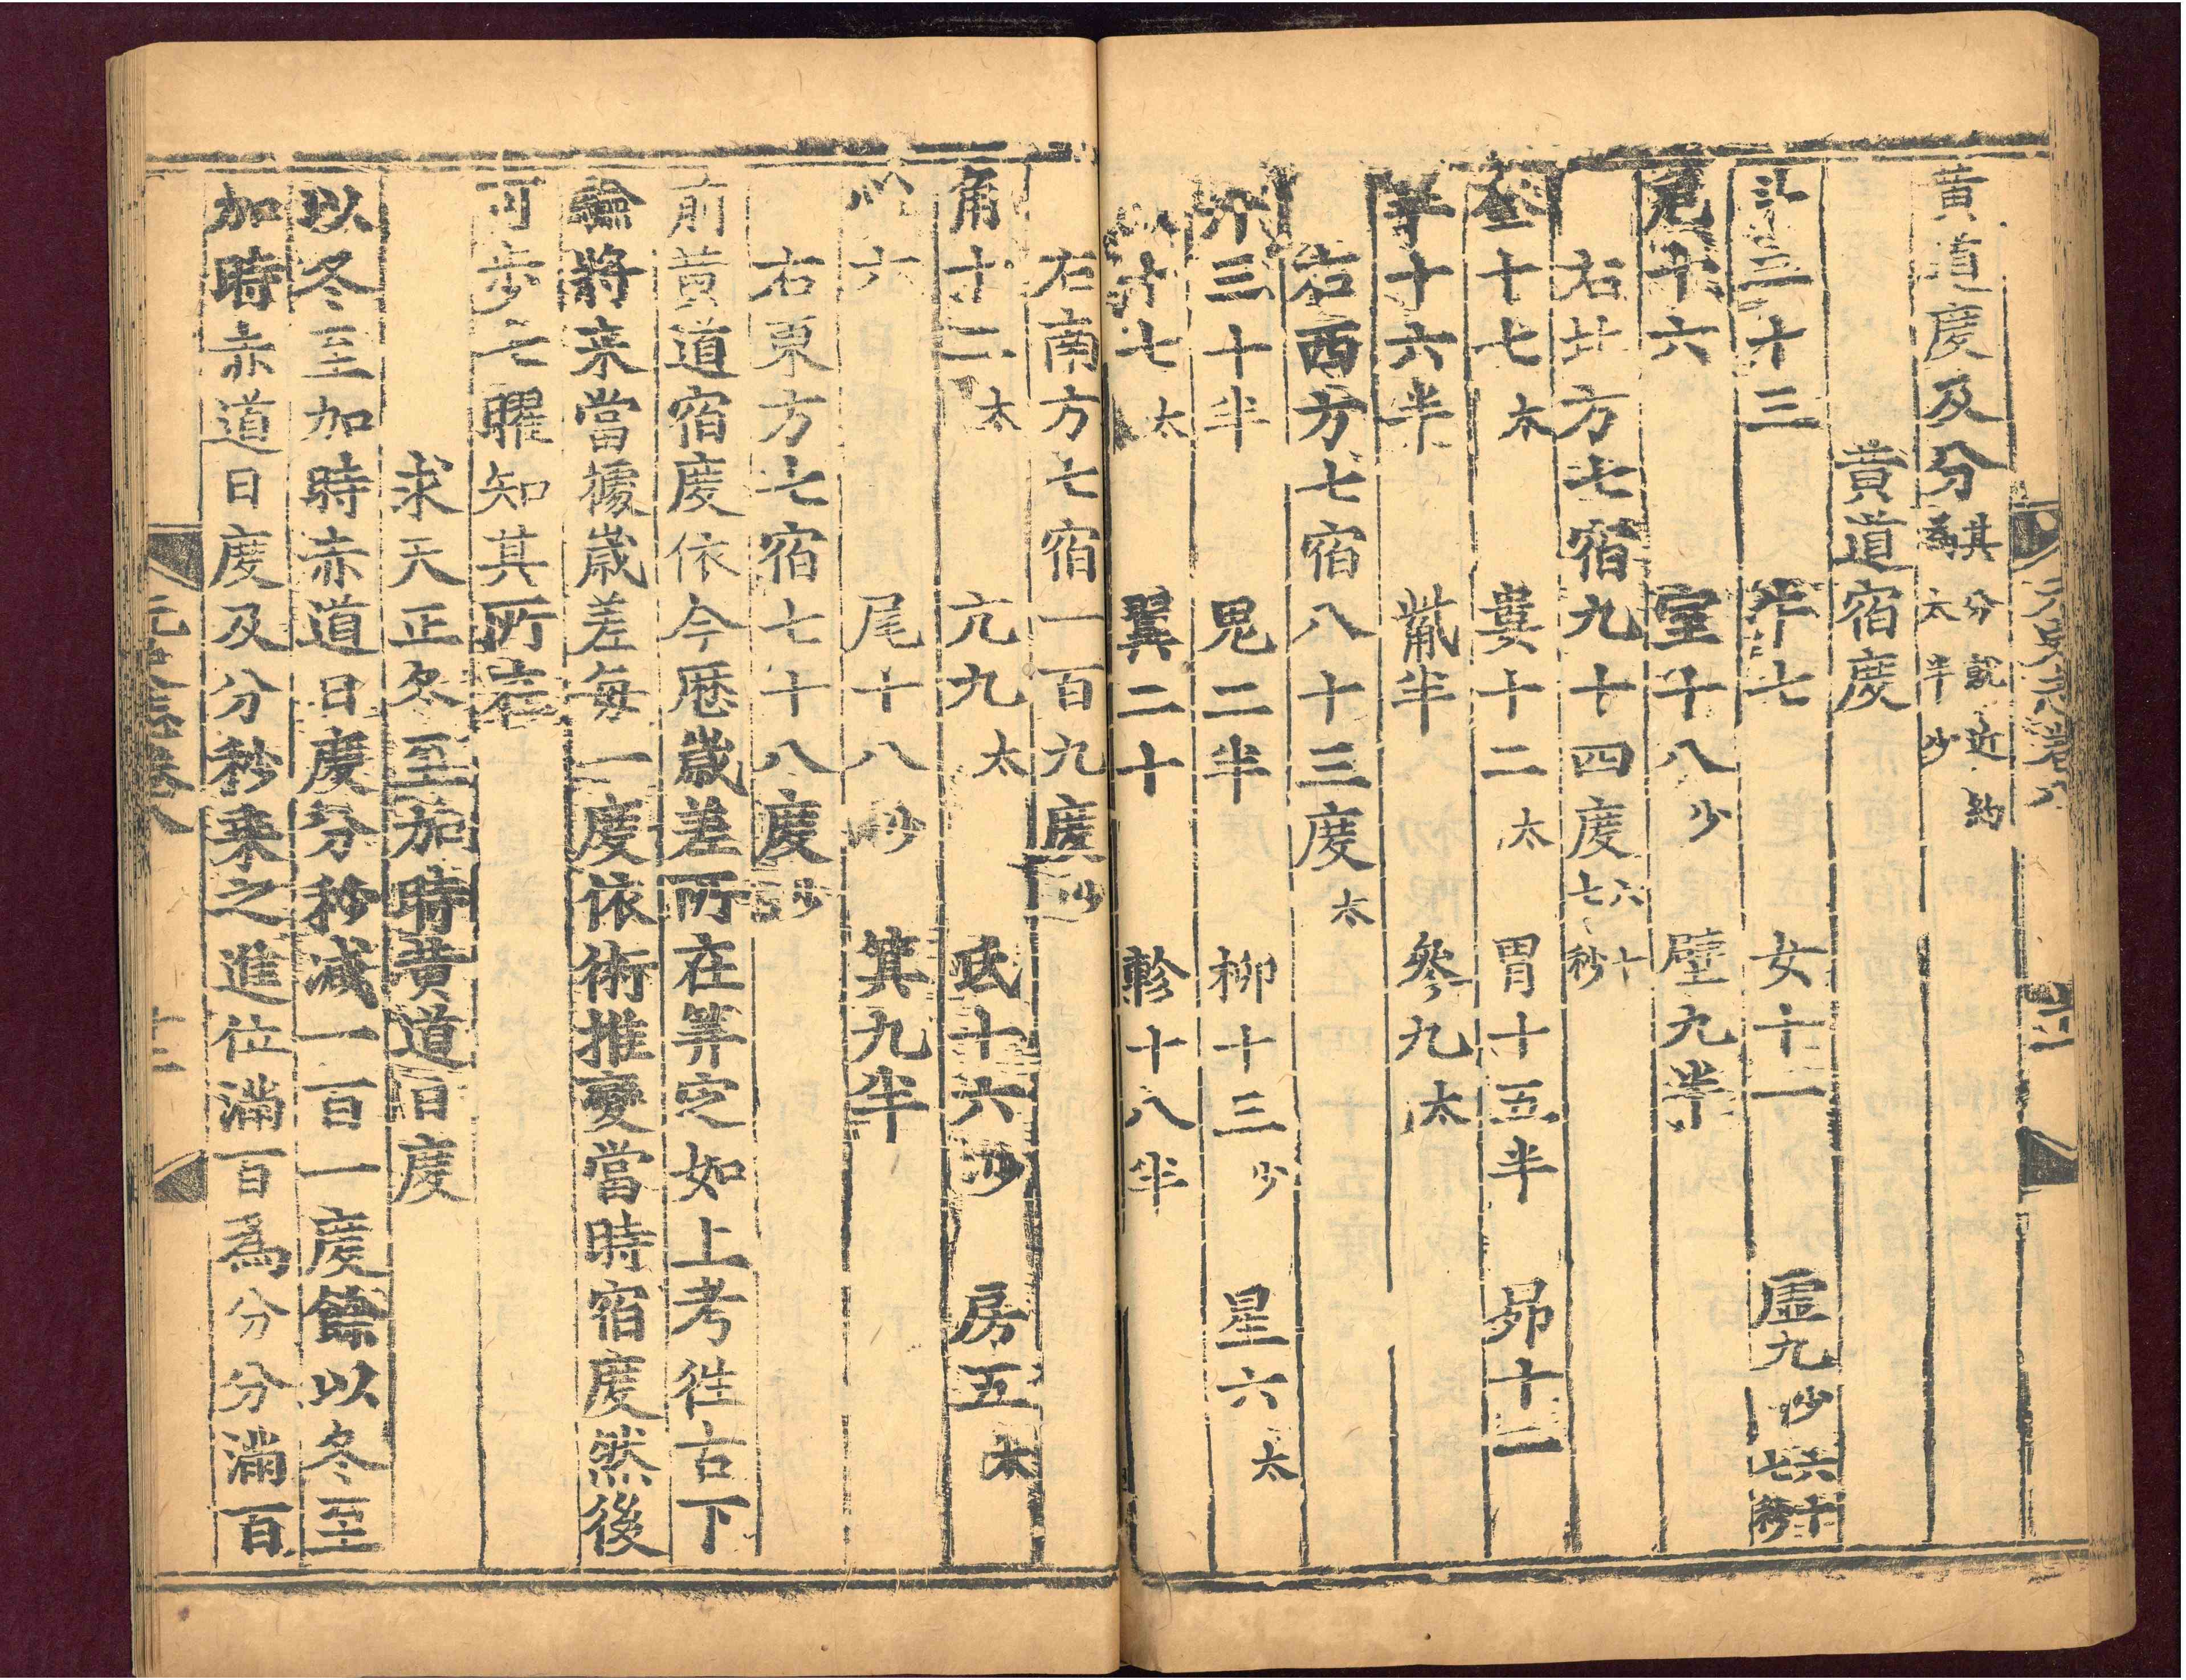 黄道度及分其分就近約為太半少
黄道宿度
斗二十三　牛七　女十一　虛九少六十七秒十
危十六　室十八少　壁九半
右北方七宿九十四度六十七秒
奎十七太　婁十二太　胃十五半　昴十一
畢十六半　觜半　參九太
右西方七宿八十三度太
井三十半　鬼二半　柳十三少　星六太
十七太　翼二十　軫十八半
右南方七宿一百九度少
角十二太　亢九太　氐十六少　房五太
心六　尾十八少　箕九半
右東方七宿七十八度少
前黄道宿度依今曆歲差所在筭定如上考徃古下
驗將来當據歲差每一度依術推變當時宿度然後
可步七曜知其所在
求天正冬至加時黄道日度
以冬至加時赤道日度分秒減一百一度餘以冬至
加時赤道日度及分秒乗之進位滿百爲分分滿百
元史志卷八
十二